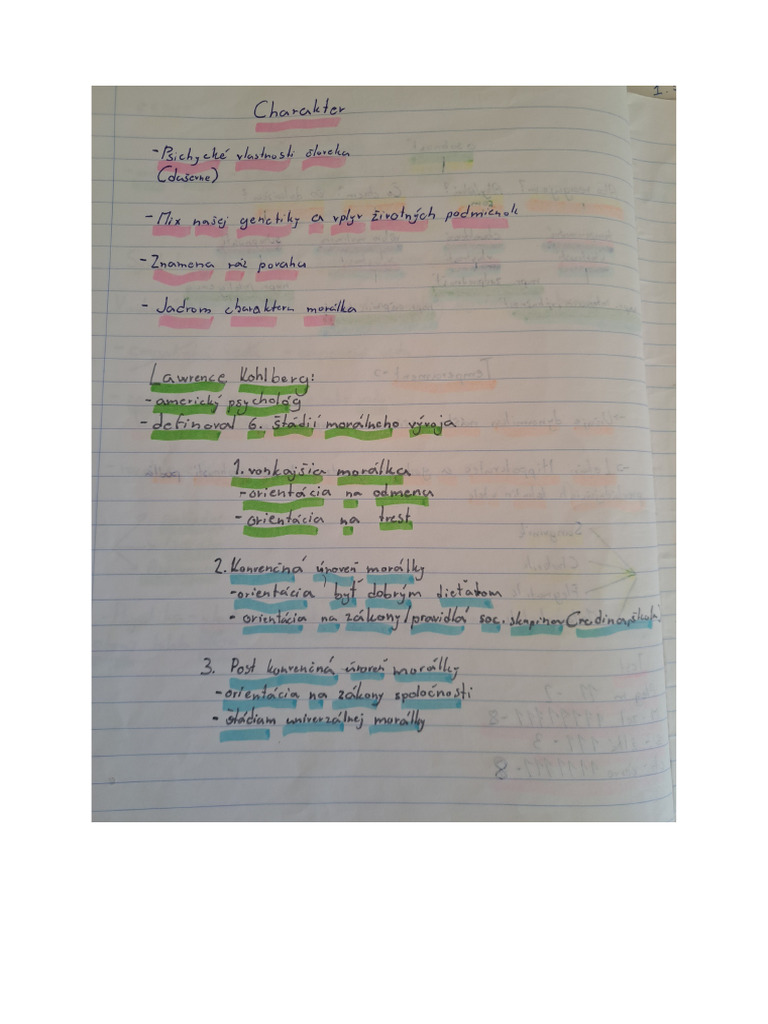 Charakter
- Psichycké vlastnosti človeka
(duševne)
- Mix našej genetiky a vplyv životných podmienok
- Znamena ráz povahu
- Jadrom charakteru morálka
Lawrence Kohlberg:
- americký psychológ
- definoval 6. štádií morálneho vývoja
1. vonkajšia morálka
- orientácia na odmenu
- orientácia na trest
2. Konvenčná úroveň morálky
- orientácia byť dobrým dieťaťom
- orientácia na zákony/pravidlá soc. skupiny (rodina, škola)
3. Post konvenčná úroveň morálky
- orientácia na zákony spoločnosti
- štádiam univerzálnej morálky